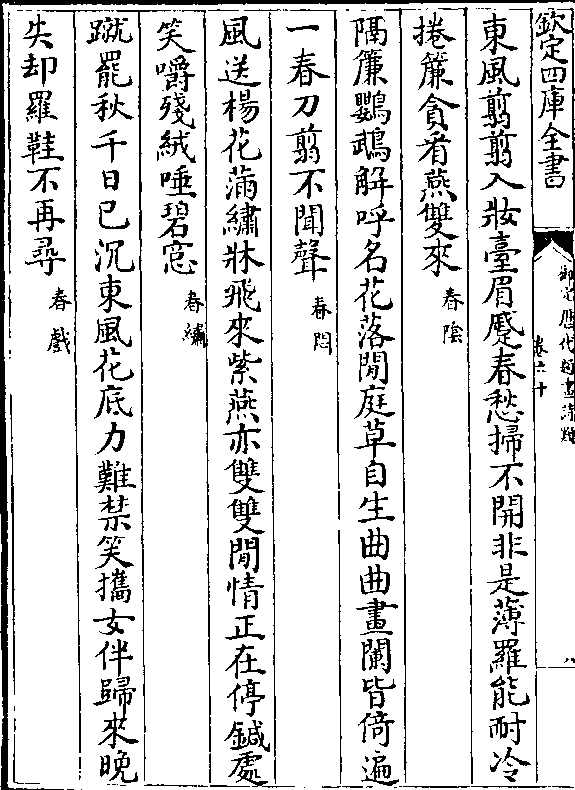 欽定四庫全書
御定歷代題畫詩類
卷六十
八
東風翦翦入妝臺眉蹙春愁掃不開非是薄羅能耐冷
捲簾貪看燕雙來 春陰
隔簾鸚鵡解呼名花落閒庭草自生曲曲畫闌皆倚遍
一春刀翦不聞聲 春悶
風送楊花滿繡牀飛來紫燕亦雙雙閒情正在停鍼處
笑嚼殘絨唾碧窓 春繡
蹴罷秋千日已沉東風花底力難禁笑攜女伴歸來晚
失却羅鞋不再尋 春戲